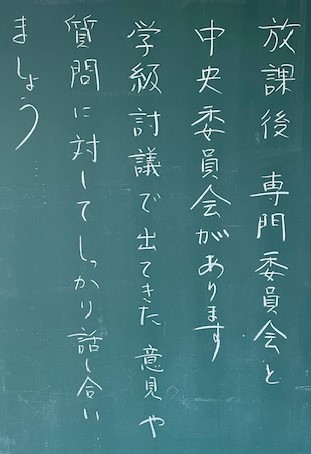 放課後 専門委員会と
中央委員会があります
学級討議で出てきた 意見や
質問に対してしっかり話し合い
ましょう